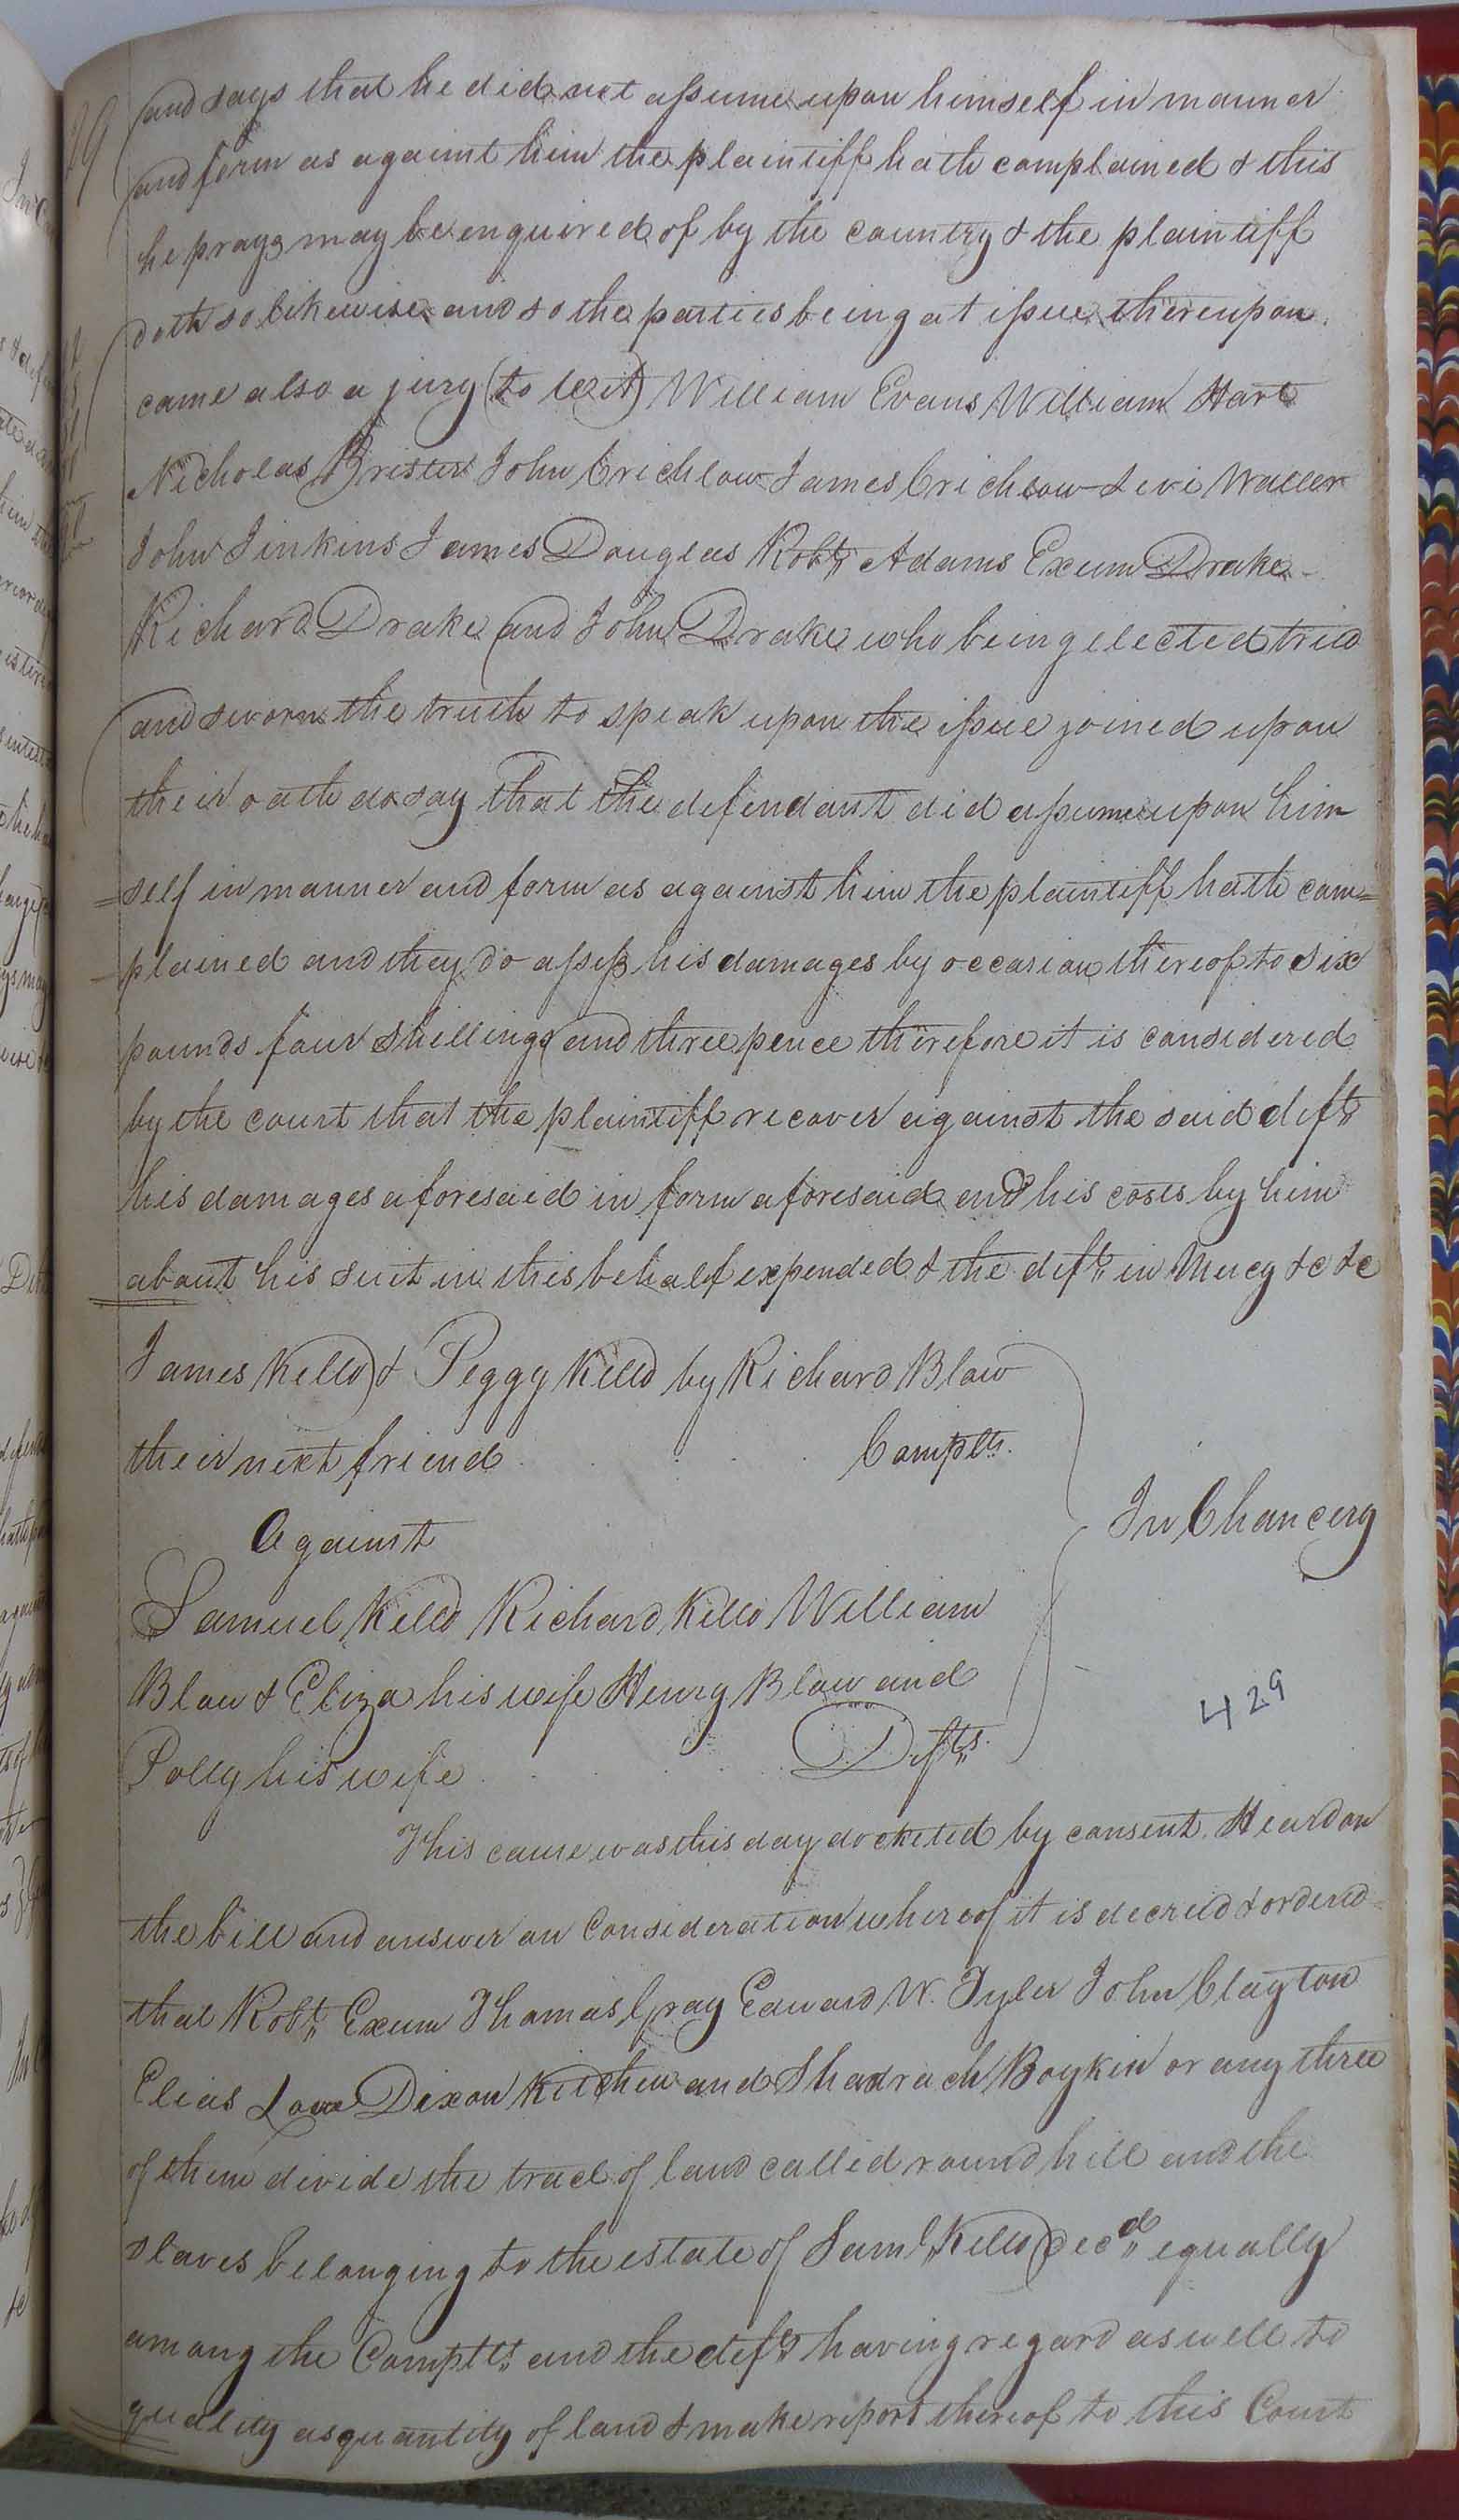 and says that he did not assume upon himself in manner
and form as against him the plaintiff hath complained & this
he prays may be enquired of by the country & the plaintiff
doth so likewise and so the parties being at issue thereupon
came also a jury (to wit) William Evans William Hart
Nicholas Brister John Crichlow James Crichlow Levi Waller
John Jinkins James Douglas Robt Adams Exum Drake
Richard Drake and John Drake who being elected tried
and sworn the truth to speak upon the issue joined upon
their oath do say That the defendant did assume upon him
=self in manner and form as against him the plaintiff hath com=
-plained and they do assess his damages by occasion thereof to six
pounds four Shillings and three pence therefore it is considered
by the court that the plaintiff recover against the said deft
his damages aforesaid in form aforesaid and his costs by him
about his suit in this behalf expended & the deft in Mercy &c &c
James Kello & Peggy Kello by Richard Blow
their next friend Complts.
Against
In Chancery
Samuel Kello Richard Kello William
Blow & Eliza his wife Henry Blow and
Polly his wife Defts.
429
This cause was this day docketed by consent. Heard on
the bill and answer on Consideration whereof it is decreed & ordered
that Robt Exum Thomas Gray Edward W. Tyler John Clayton
Elias Love Dixon Kitchen and Shadrach Boykin or any three
of them divide the tract of land called round hill and the
slaves belonging to the estate of Saml Kello decd equally
among the Complts and the defts having regard as well to
quality as quantity of land & make report thereof to this Court